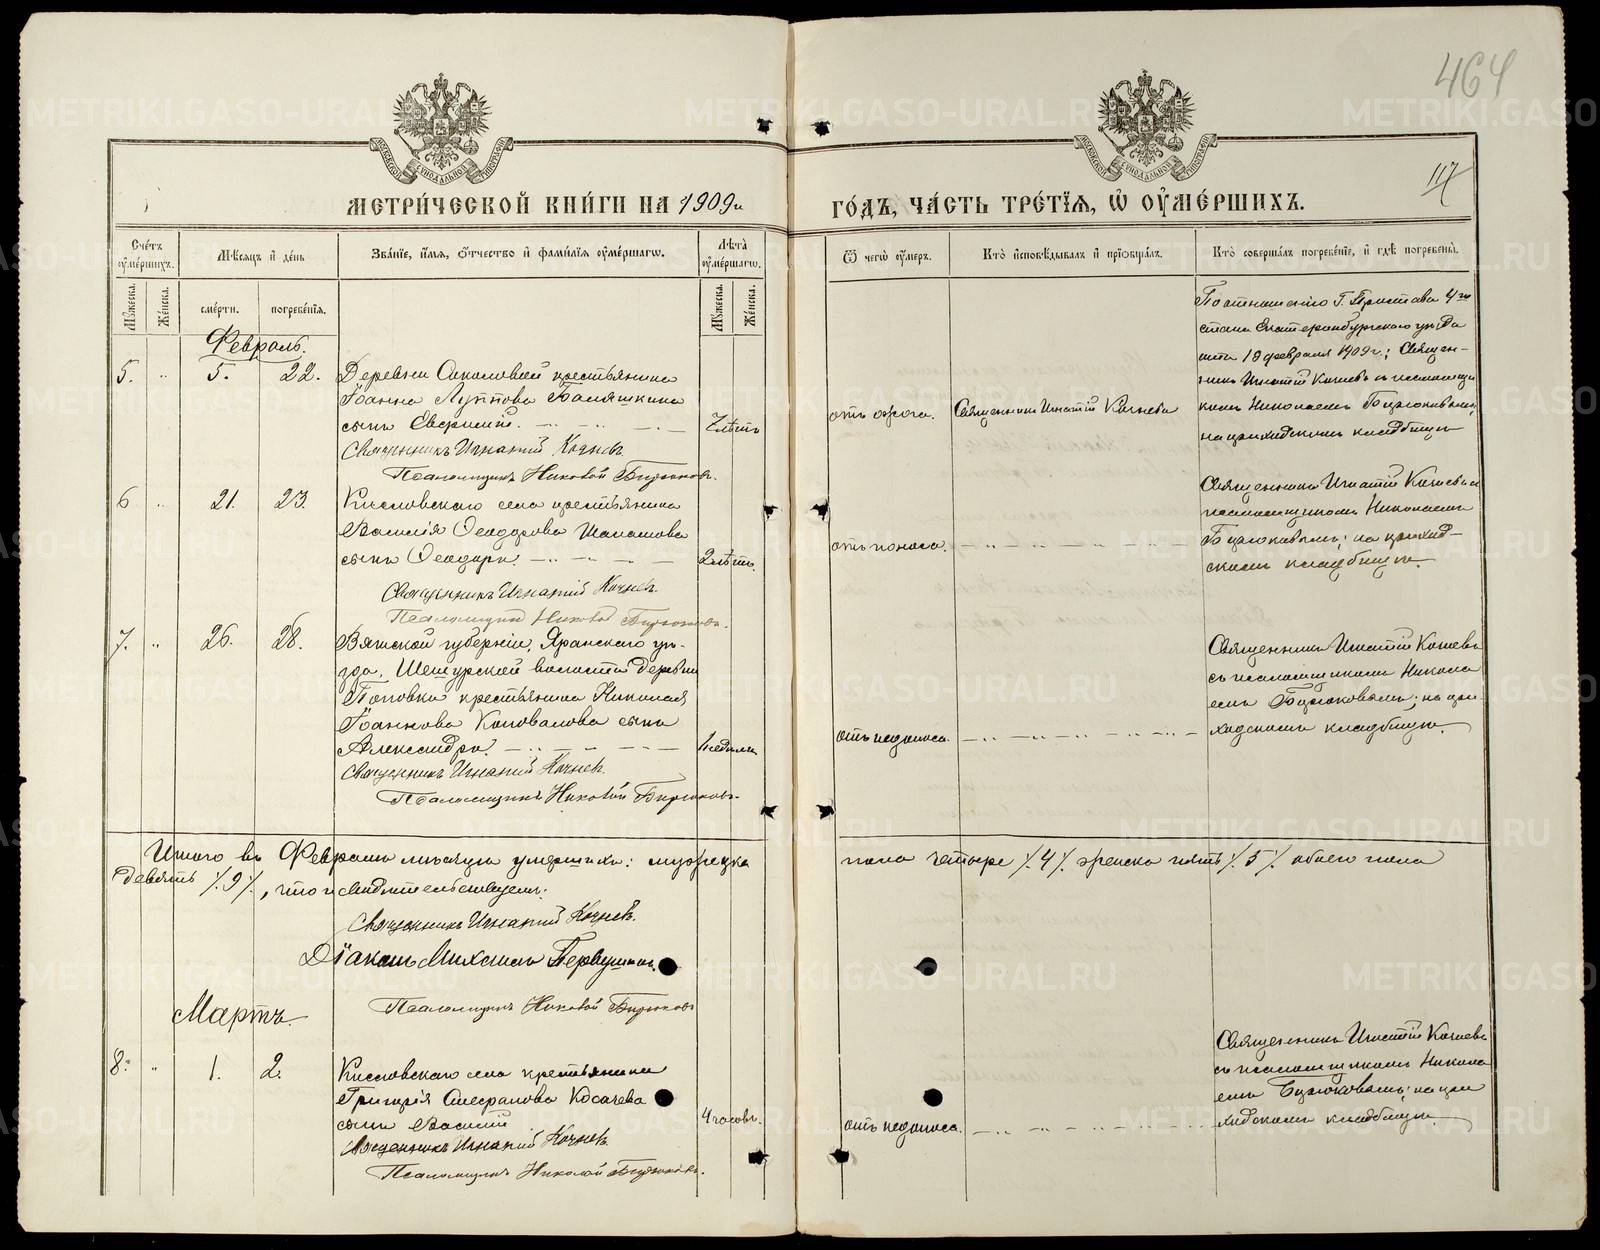 464
117
МЕТРИ́ЧЕСКОЙ КНИ́ГИ НА 1909 й
ГО́ДЪ, ЧА́СТЬ ТРЕ́ТЇѦ, Ѽ ОУ҆МЕ́РШИХЪ.
Сче́тъ оу҆ме́ршихъ.
Мѣ́сѧцъ и҆ де́нь
Зва́нїе, и҆́мѧ, ѻ҆́тчество и҆ фами́лїѧ оу҆ме́ршагѡ.
Лѣ́та оу҆ме́ршагѡ.
Ѿ чегѡ̀ оу҆́меръ.
Кто̀ и҆сповѣ́дывалъ и҆ прїѡбща́лъ.
Кто̀ соверша́лъ погребе́нїе, и҆ гдѣ̀ погребены̀.
Мꙋ́жеска.
Же́нска.
сме́рти.
погребе́нїѧ.
Мꙋ́жеска.
Же́нска.
Февраль.
5. " 5. 22.
Деревни Соколовой крестьянина
Іоанна Луппова
сынъ Евфимій.
7 лѣтъ
Священникъ Игнатій Кочневъ
Псаломщикъ Николай Бирюковъ.
отъ ожога.
Священникъ Игнатій Кочневъ
По отношенію Г. Пристава 4го
стана Екатеринбургскаго уѣзда
отъ 18 февраля 1909 г.; Священ-
никъ Игнатій Кочневъ съ псаломщи
комъ Николаемъ Бирюковымъ,
на приходскомъ кладбищѣ
6 " 21. 23.
Кисловскаго села крестьянина
Василія Ѳеодорова
сынъ Ѳеодоръ.
2 лѣтъ.
Священникъ Игнатій Кочневъ.
Псаломщикъ Николай Бирюковъ.
отъ поноса.
Священникъ Игнатій Кочневъ съ
псаломщикомъ Николаемъ
Бирюковымъ; на приход-
скомъ кладбищѣ.
7. " 26. 28.
Вятской губерніи, Яранскаго уѣ-
зда, Шешурской волости деревни
Поповки крестьянина Николая
Іоаннова Коновалова сынъ
Александръ
1 недѣли
Священникъ Игнатій Кочневъ.
Псаломщикъ Николай Бирюковъ.
отъ недоноса.
Священникъ Игнатій Кочневъ
съ псаломщикомъ Никола
емъ Бирюковымъ; на при-
ходскомъ кладбищѣ.
Итого въ Февралѣ мѣсяцѣ умершихъ: мужеска
пола четыре /.4/. женска пять /.5/. обоего пола
девять /.9/., что и свидѣтельствуемъ:
Священникъ Игнатій Кочневъ.
Діаконъ Михаилъ Первушинъ.
Псаломщикъ Николай Бирюковъ
Мартъ.
8. " 1. 2.
Кисловскаго села крестьянина
Григорія Косачева
сынъ Василій
4 часовъ.
Священникъ Игнатій Кочневъ.
Псаломщикъ Николай Бирюковъ.
отъ недоноса.
Священникъ Игнатій Кочневъ
съ псаломщикомъ Никола
емъ Бирюковымъ; на при
ходскомъ кладбищѣ.
METRIKI.GASO-URAL.RU